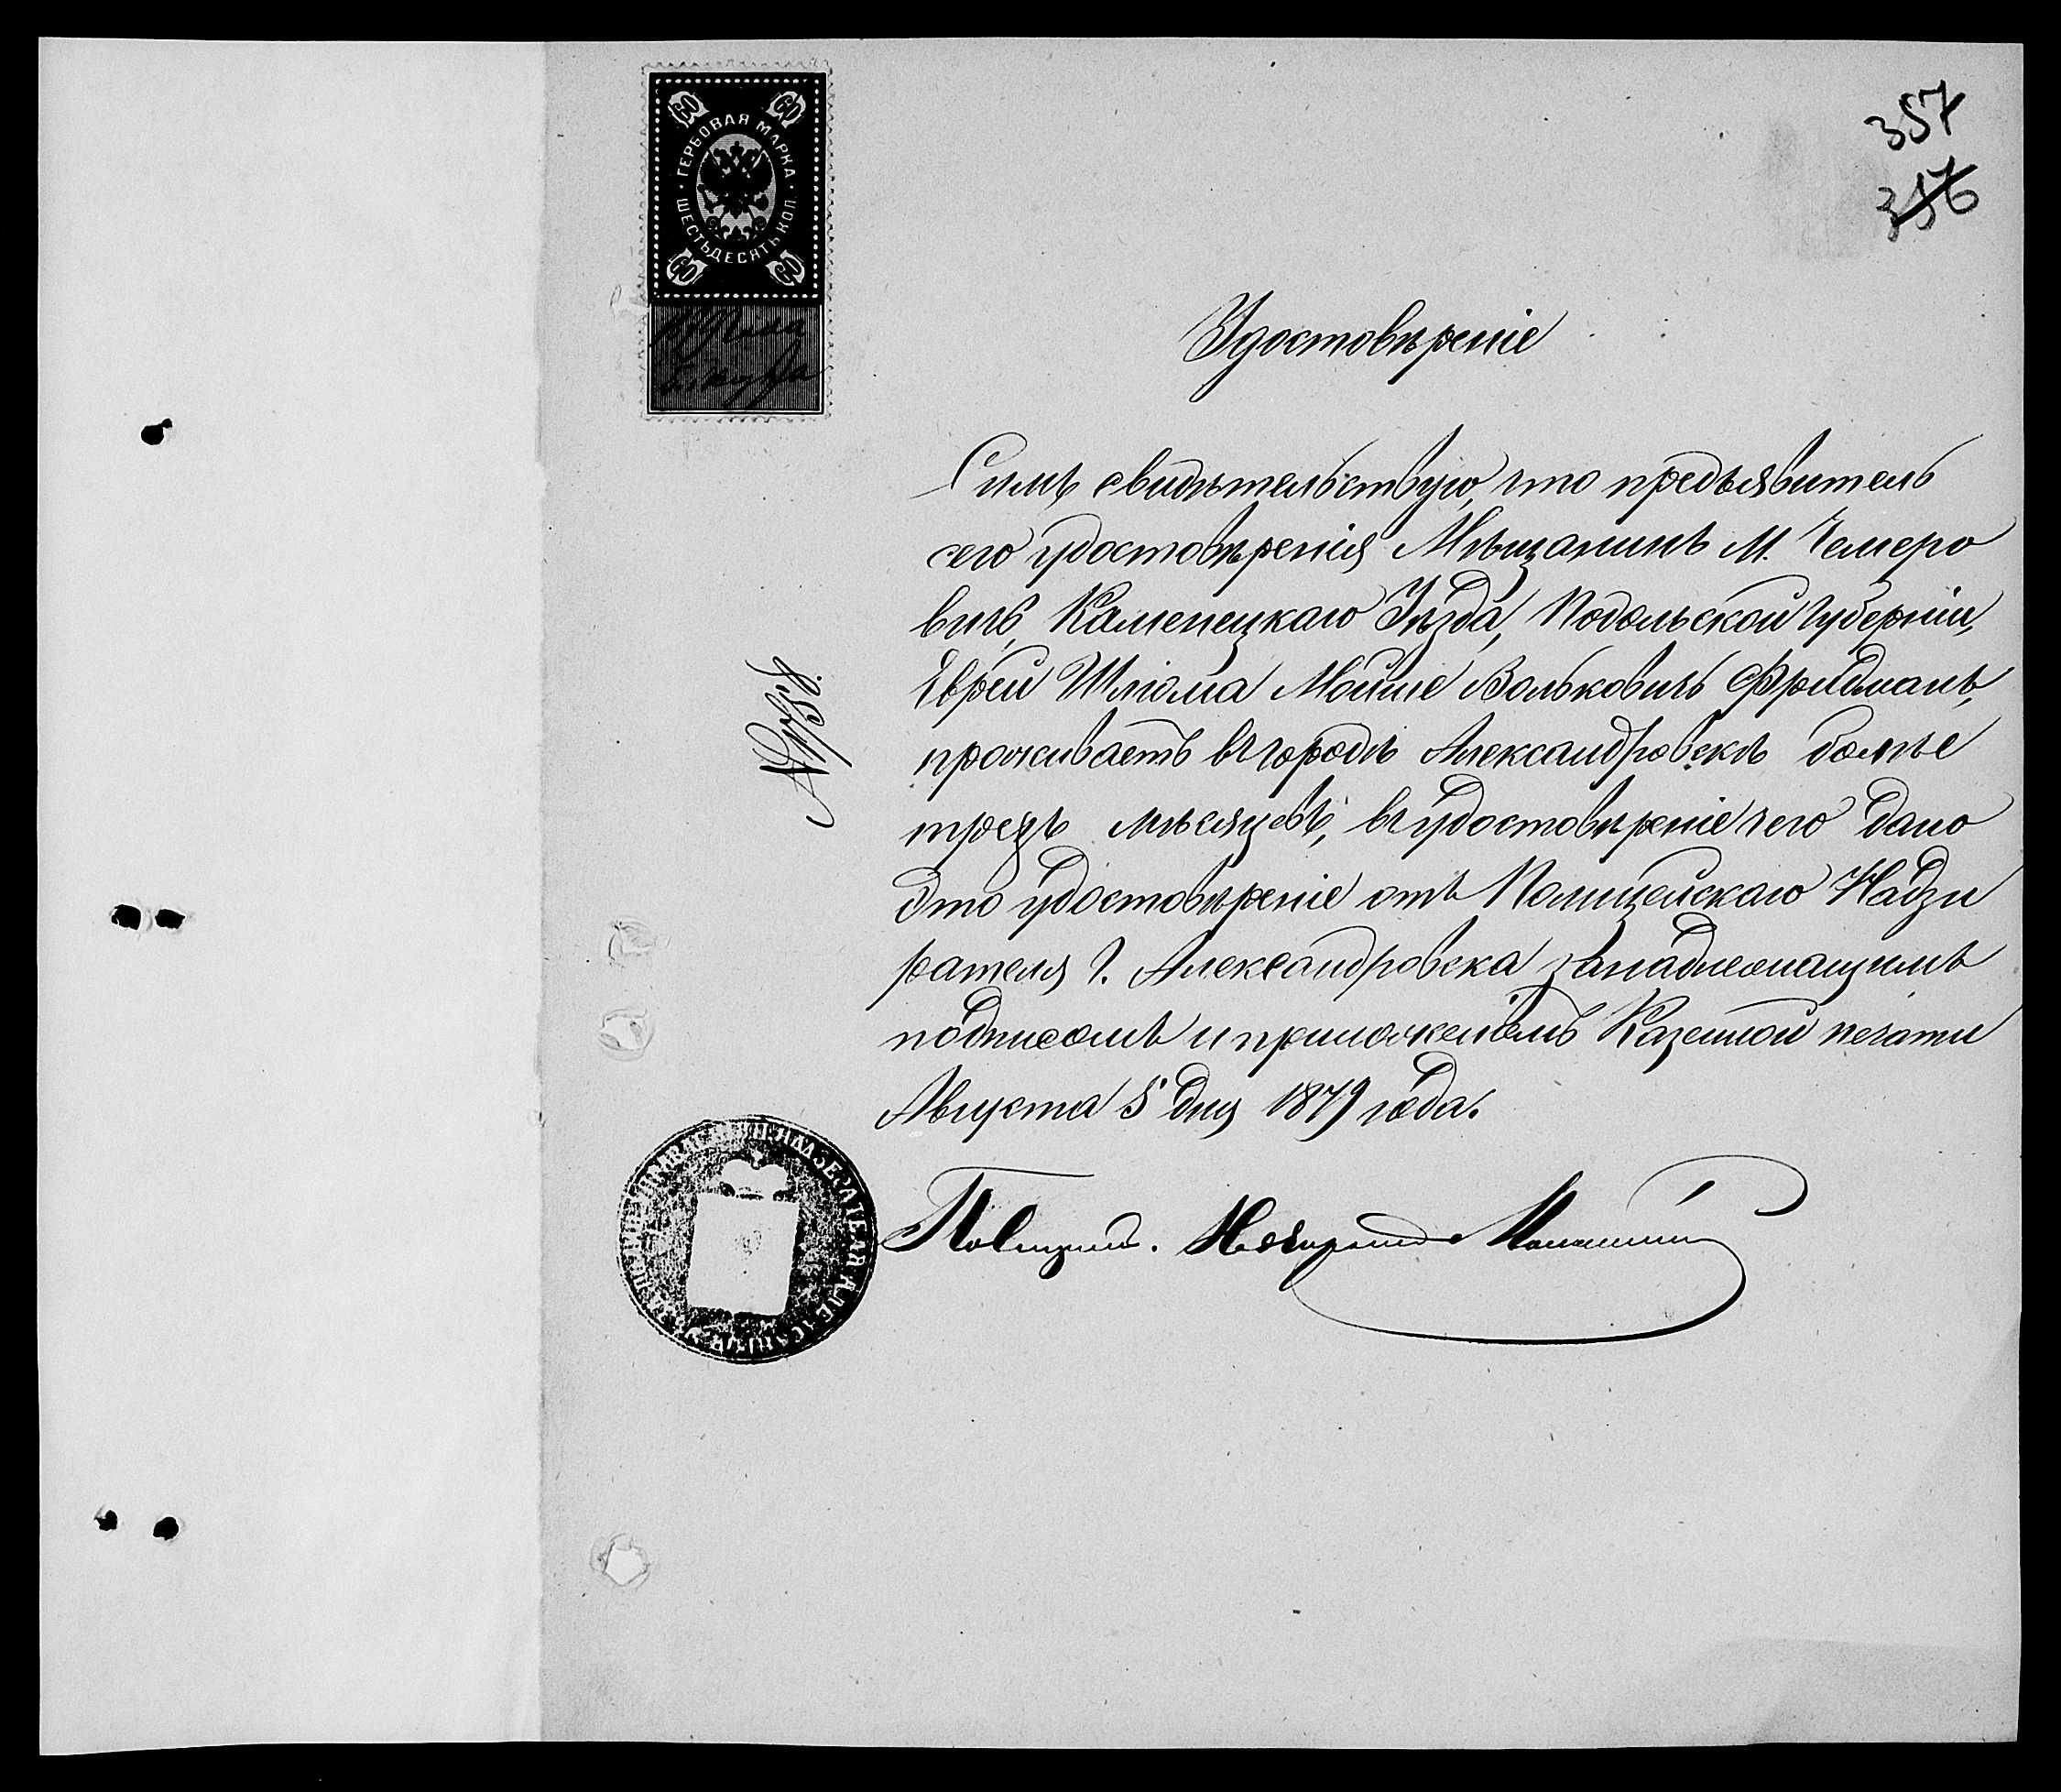 357
356
ГЕРБОВАЯ МАРКА
ШЕСТЬДЕСЯТЪ КОП.
60 60
60 60
Удостовѣреніе
Симъ свидѣтельствую, что предъявитель
сего удостовѣренія Мѣщанинъ М. Чемеро
вичъ, Каменецкаго Уѣзда, Подольской Губерніи,
Еврей Шлиома Моише Вольковичъ Фридманъ,
проживаетъ въ городѣ Александровскѣ болѣе
трехъ мѣсяцевъ, въ удостовѣреніе чего дано
Это удостовѣреніе отъ Полицейскаго Надзи
рателя Г. Александровска за надлежащимъ
подписомъ и приложеніемъ Казенной печати
Августа 5 дня 1879 года.
Полицейс. Надзиратель